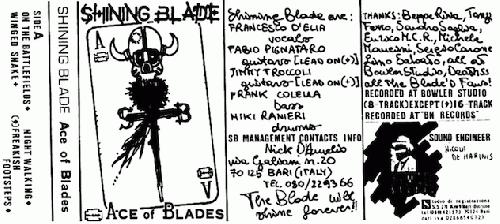 SIDE A
ON THE BATTLEFIELDS • NIGHT WALKING •
WINGED SNAKE • (+)FREAKISH
FOOTSTEPS •
SHINING BLADE Ace of Blades
SHINING BLADE
A
ACE OF BLADES
A
Shining Blade are:
FRANCESCO D'ELIA
vocals
FABIO PIGNATARO
guitars (LEAD ON(+))
JIMMY TROCCOLI
guitars (LEAD ON(+))
FRANK COLELLA
bass
MIKI RANIERI
drums
SB MANAGEMENT CONTACTS INFO
Nick D'Amelio
via Galiani n.20
70125 BARI (ITALY)
TEL. 080/229366
The Blade will
shine forever!!
THANKS: Beppe Riva, Tony
Ferro, Sandro
M.C.R., Michele
Sergio Carone
Rino all at
Bowler Studio,
all the Blade'D Fans!
RECORDED AT BOWLER STUDIO
(8 TRACK) EXCEPT (+) 16 TRACK
RECORDED AT "UN RECORDS"
SOUND ENGINEER
DE MARINIS